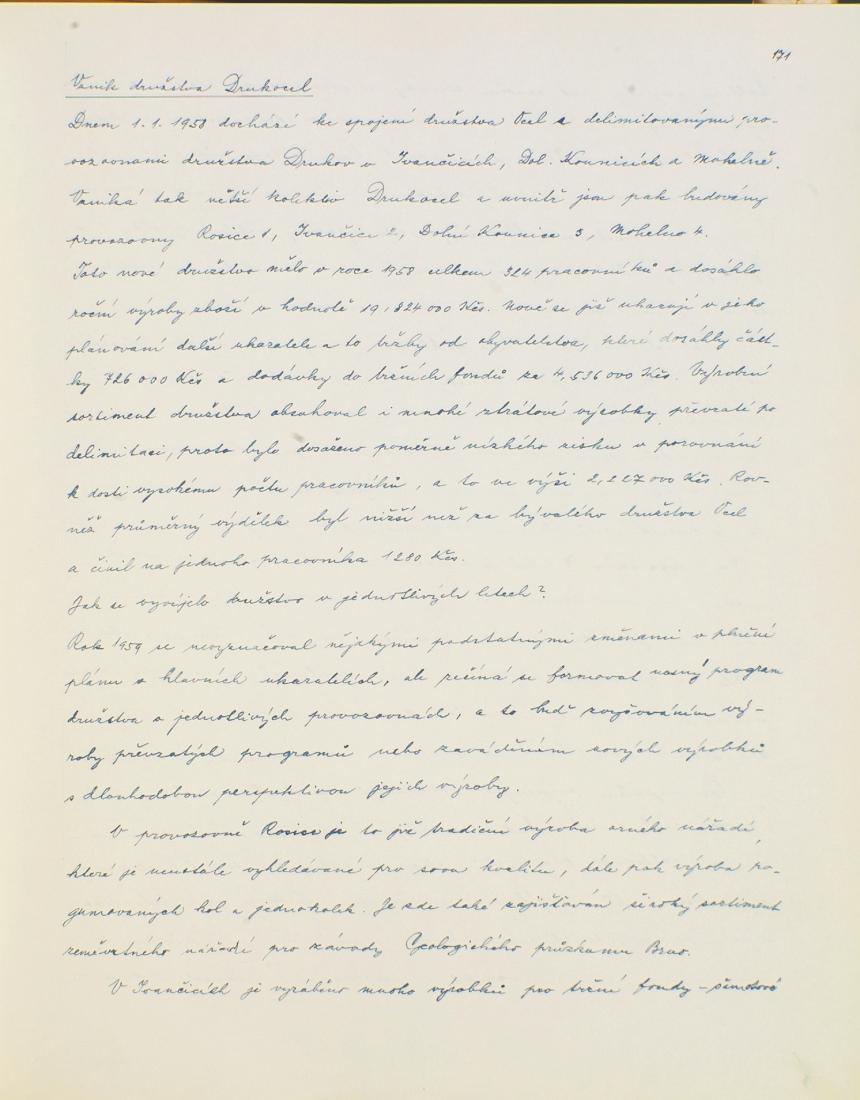 171
Vznik družstva Drukocel
Dnem 1.1. 1958 dochází ke spojení družstva Ocel s delimitovanými pro-
vozovnami družstva Drukov v Ivančicích, Dol. Kounicích a Mohelně.
Vzniká tak větší kolektiv Drukocel a uvnitř jsou pak budovány
provozovny Rosice 1, Ivančice 2, Dolní Kounice 3, Mohelno 4.
Toto nové družstvo mělo v roce 1958 celkem 324 pracovníků a dosáhlo
roční výroby zboží v hodnotě 19,824 000 Kčs. Nově se již ukazují v jeho
plánování další ukazatele a to tržby od obyvatelstva, které dosáhly část-
ky 726 000 Kčs a dodávky do tržních fondů za 4,536 000 Kčs. Výrobní
sortiment družstva obsahoval i mnohé ztrátové výrobky převzaté po
delimitaci, proto bylo dosaženo poměrně nízkého zisku v porovnání
k dosti vysokému počtu pracovníků, a to ve výši 2,227 000 Kčs. Rov-
něž průměrný výdělek byl nižší než za bývalého družstva Ocel
a činil na jednoho pracovníka 1280 Kčs.
Jak se vyvíjelo družstvo v jednotlivých letech?
Rok 1959 se nevyznačoval nějakými podstatnými změnami v plnění
plánu v hlavních ukazatelích, ale začíná se formovat nosný program
družstva v jednotlivých provozovnách, a to buď zvyšováním vý-
roby převzatých programů nebo zaváděním nových výrobků
s dlouhodobou perspektivou jejich výroby.
V provozovně Rosice je to již tradiční výroba orného nářadí,
které je neustále vyhledávané pro svou kvalitu, dále pak výroba po-
gumovaných kol a jednokolek. Je zde také zajišťován široký sortiment
zeměvrtného nářadí pro závody Geologického průzkumu Brno.
V Ivančicích je vyráběno mnoho výrobků pro tržní fondy -